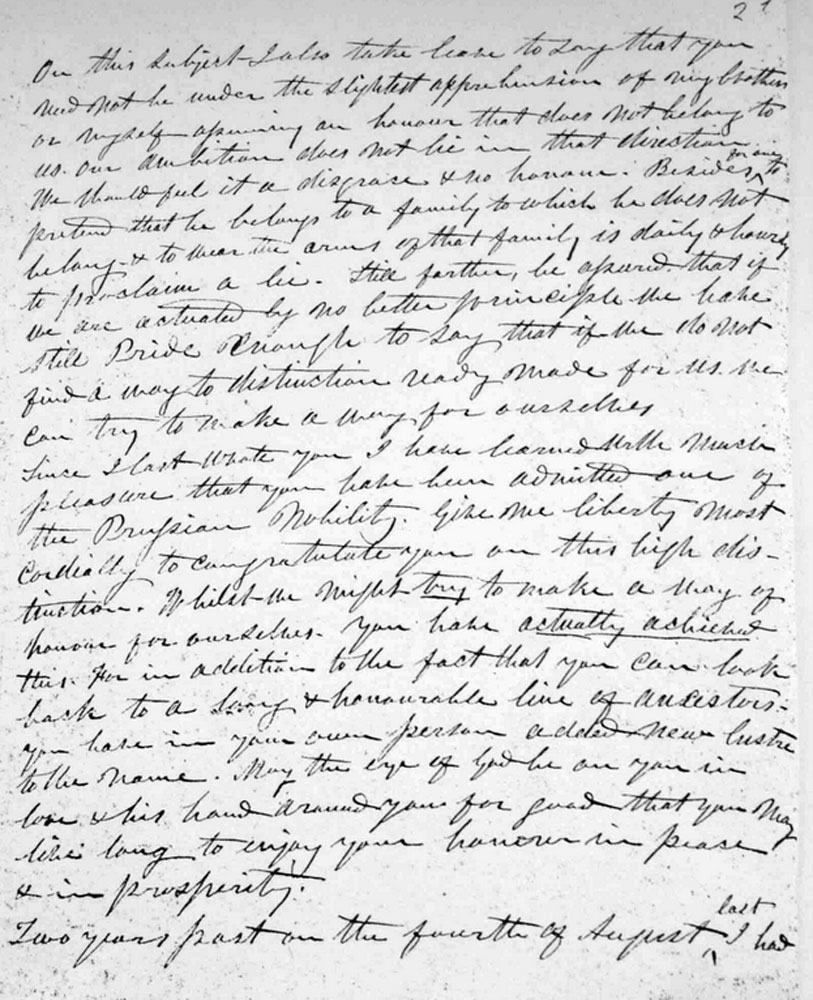 2
On this subject I also take leave to say that you
need not be under the slightest apprehension of my brothers
or myself assuming an honour that does not belong to
us. Our ambition does not lie in that direction.
We should feel it a disgrace & no honour. Besides, for one to
pretend that he belongs to a family to which he does not
belong & to wear the arms of that family is daily & hourly
to proclaim a lie. Still farther, be assured that if
we are actuated by no better principle we have
still Pride enough to say that if we do not
find a way to distinction ready made for us we
can try to make a way for ourselves
Since I last wrote you I have learned with much
pleasure that you have been admitted one of
the Prussian Nobility. Give me liberty most
cordially to congratulate you on this high dis-
tinction. Whilst we might try to make a way of
honour for ourselves. You have actually achieved
this. For in addition to the fact that you can look
back to a long & honourable line of ancestors-
you have in your own person added new lustre
to the name. May the eye of God be on you in
love & his hand around you for good that you may
live long to enjoy your honour in peace
& in prosperity.
Two years past on the fourth of August last I had